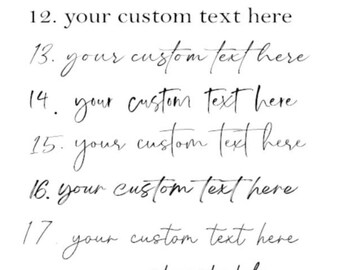 12. your custom text here
13. your custom text here
14. your custom text here
15. your custom text here
16. your custom text here
17. your custom text here